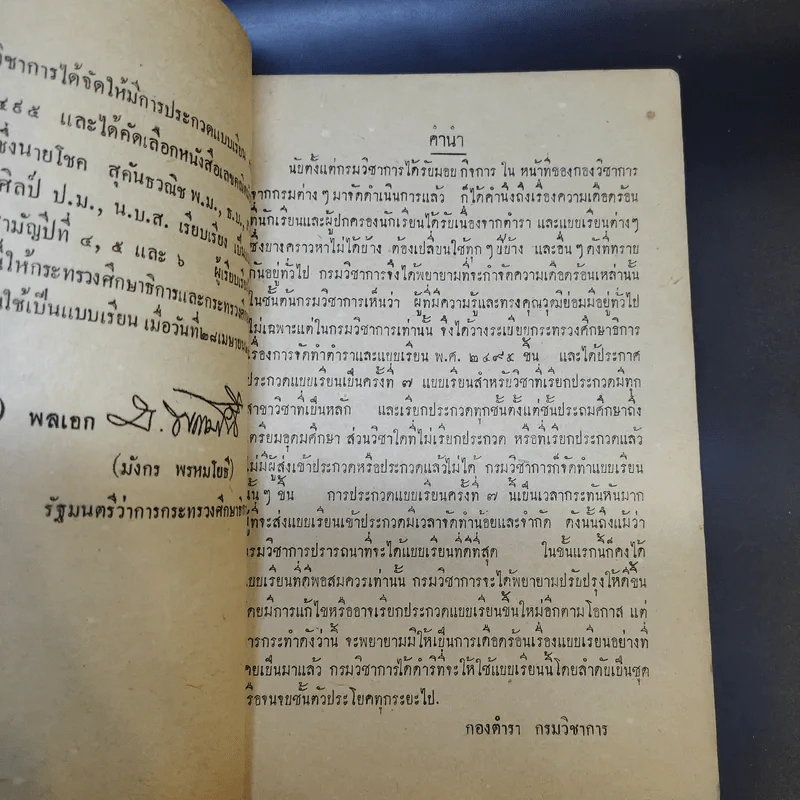 วิชาการได้จัดให้มีการประกวดแบบเรียน
๔๙๕ และได้คัดเลือกหนังสือเลขคณิต
ซึ่งนายโชค สุคันธวณิช พ.ม., ธ.บ.,
ศิลป์ ป.ม., น.บ.ส. เรียบเรียง เป็น
สามัญปีที่ ๔, ๕ และ ๖ ผู้เรียบเรียง
ให้กระทรวงศึกษาธิการและกระทรวงศึกษา
ใช้เป็นแบบเรียน เมื่อวันที่ ๒๘ เมษายน
พลเอก
(มังกร พรหมโยธี)
รัฐมนตรีว่าการกระทรวงศึกษาธิ
คำนำ
นับตั้งแต่กรมวิชาการได้รับมอบ กิจการ ใน หน้าที่ของกองวิชาการ
จากกรมต่าง ๆ มาจัดดำเนินการแล้ว ก็ได้คำนึงถึงเรื่องความเดือดร้อน
ที่นักเรียนและผู้ปกครองนักเรียนได้รับเนื่องจากตำรา และแบบเรียนต่างๆ
ซึ่งบางคราวหาไม่ได้บ้าง ต้องเปลี่ยนใช้ทุก ๆ ปีบ้าง และอื่นๆ ดังที่ทราบ
กันอยู่ทั่วไป กรมวิชาการจึงได้พยายามที่จะกำจัดความเดือดร้อนเหล่านั้น
ในชั้นต้นกรมวิชาการเห็นว่า ผู้ที่มีความรู้และทรงคุณวุฒิย่อมมีอยู่ทั่วไป
ไม่เฉพาะแต่ในกรมวิชาการเท่านั้น จึงได้วางระเบียบกระทรวงศึกษาธิการ
เรื่องการจัดทำตำราและแบบเรียน พ.ศ. ๒๔๙๕ ขึ้น และได้ประกาศ
ประกวดแบบเรียนเป็นครั้งที่ ๗ แบบเรียนสำหรับวิชาที่เรียกประกวดมีทุก
สาขาวิชาที่เป็นหลัก และเรียกประกวดทุกชั้นตั้งแต่ชั้นประถมศึกษาถึง
เตรียมอุดมศึกษา ส่วนวิชาใดที่ไม่เรียกประกวด หรือที่เรียกประกวดแล้ว
ไม่มีผู้ส่งเข้าประกวดหรือประกวดแล้วไม่ได้ กรมวิชาการก็จัดทำแบบเรียน
นั้นๆ ขึ้น การประกวดแบบเรียนครั้งที่ ๗ นี้เป็นเวลากระทันหันมาก
ผู้ที่จะส่งแบบเรียนเข้าประกวดมีเวลาจัดทำน้อยและจำกัด ดังนั้นถึงแม้ว่า
กรมวิชาการปรารถนาที่จะได้แบบเรียนที่ดีที่สุด ในชั้นแรกนี้ก็คงได้
แบบเรียนที่ดีพอสมควรเท่านั้น กรมวิชาการจะได้พยายามปรับปรุงให้ดีขึ้น
โดยมีการแก้ไขหรืออาจเรียกประกวดแบบเรียนขึ้นใหม่อีกตามโอกาส แต่
การกระทำดังว่านี้ จะพยายามมิให้เป็นการเดือดร้อนเรื่องแบบเรียนอย่างที่
เคยเป็นมาแล้ว กรมวิชาการได้ดำริที่จะให้ใช้แบบเรียนนี้โดยลำดับเป็นชุด
หรือจนจบชั้นตัวประโยคทุกระยะไป.
กองตำรา กรมวิชาการ